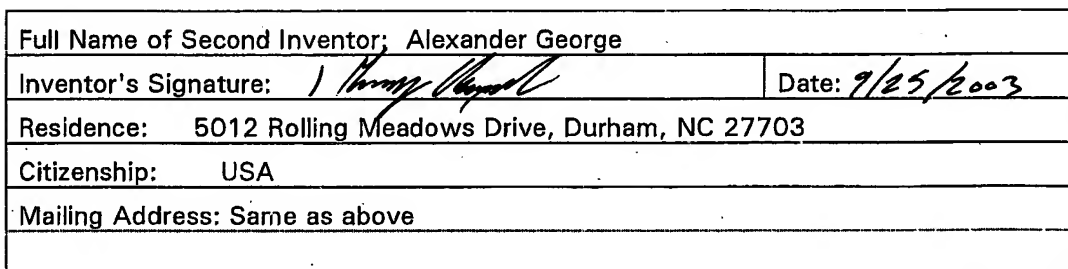 Full Name of Second Inventor: Alexander George
Inventor's Signature: Date: 9/25/2003
Residence: 5012 Rolling Meadows Drive, Durham, NC 27703
Citizenship: USA
Mailing Address: Same as above